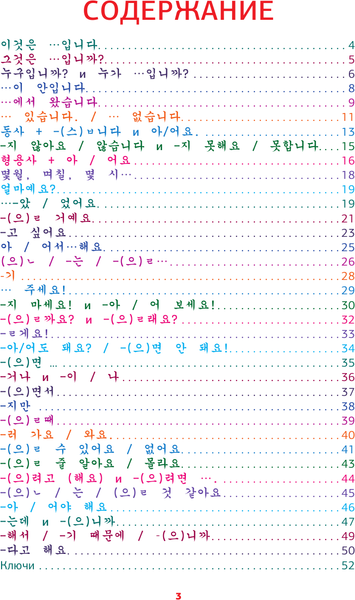 СОДЕРЖАНИЕ
이것은 …입니다 4
그것은 …입니다 5
누구입니까? и 누가 …입니까? 6
…이 안입니다 8
…에서 왔습니다 9
… 있습니다. / … 없습니다 11
동사 + -(스)ㅂ니다 и 아/어요. 13
-지 않아요 / 않습니다 и -지 못해요 / 못합니다 15
형용사 + 아 / 어요 16
몇월, 며칠, 몇 시… 18
얼마예요? 19
…-았 / 었어요 19
-(으)ㄹ 거예요 21
-고 싶어요 23
아 / 어서…해요 25
(으)ㄴ / -는 / -(으)ㄹ… 26
-기 28
… 주세요! 29
-지 마세요! и -아 / 어 보세요! 30
-(으)ㄹ까요? и -(으)ㄹ래요? 32
-ㄹ게요! 33
-아/어도 돼요? / -(으)면 안 돼요! 34
-(으)면 … 35
-거나 и -이 / 나 36
-(으)면서 37
-지만 38
-(으)ㄹ때 39
-러 가요 / 와요 40
-(으)ㄹ 수 있어요 / 없어요 41
-(으)ㄹ 줄 알아요 / 몰라요 43
-(으)려고 (해요) и -(으)려면 …. 44
-(으)ㄴ / 는 / (으)ㄹ 것 같아요 45
-아 / 어야 해요 46
-는데 и -(으)니까 47
-해서 / -기 때문에 / -(으)니까 49
-다고 해요 50
Ключи 52
3